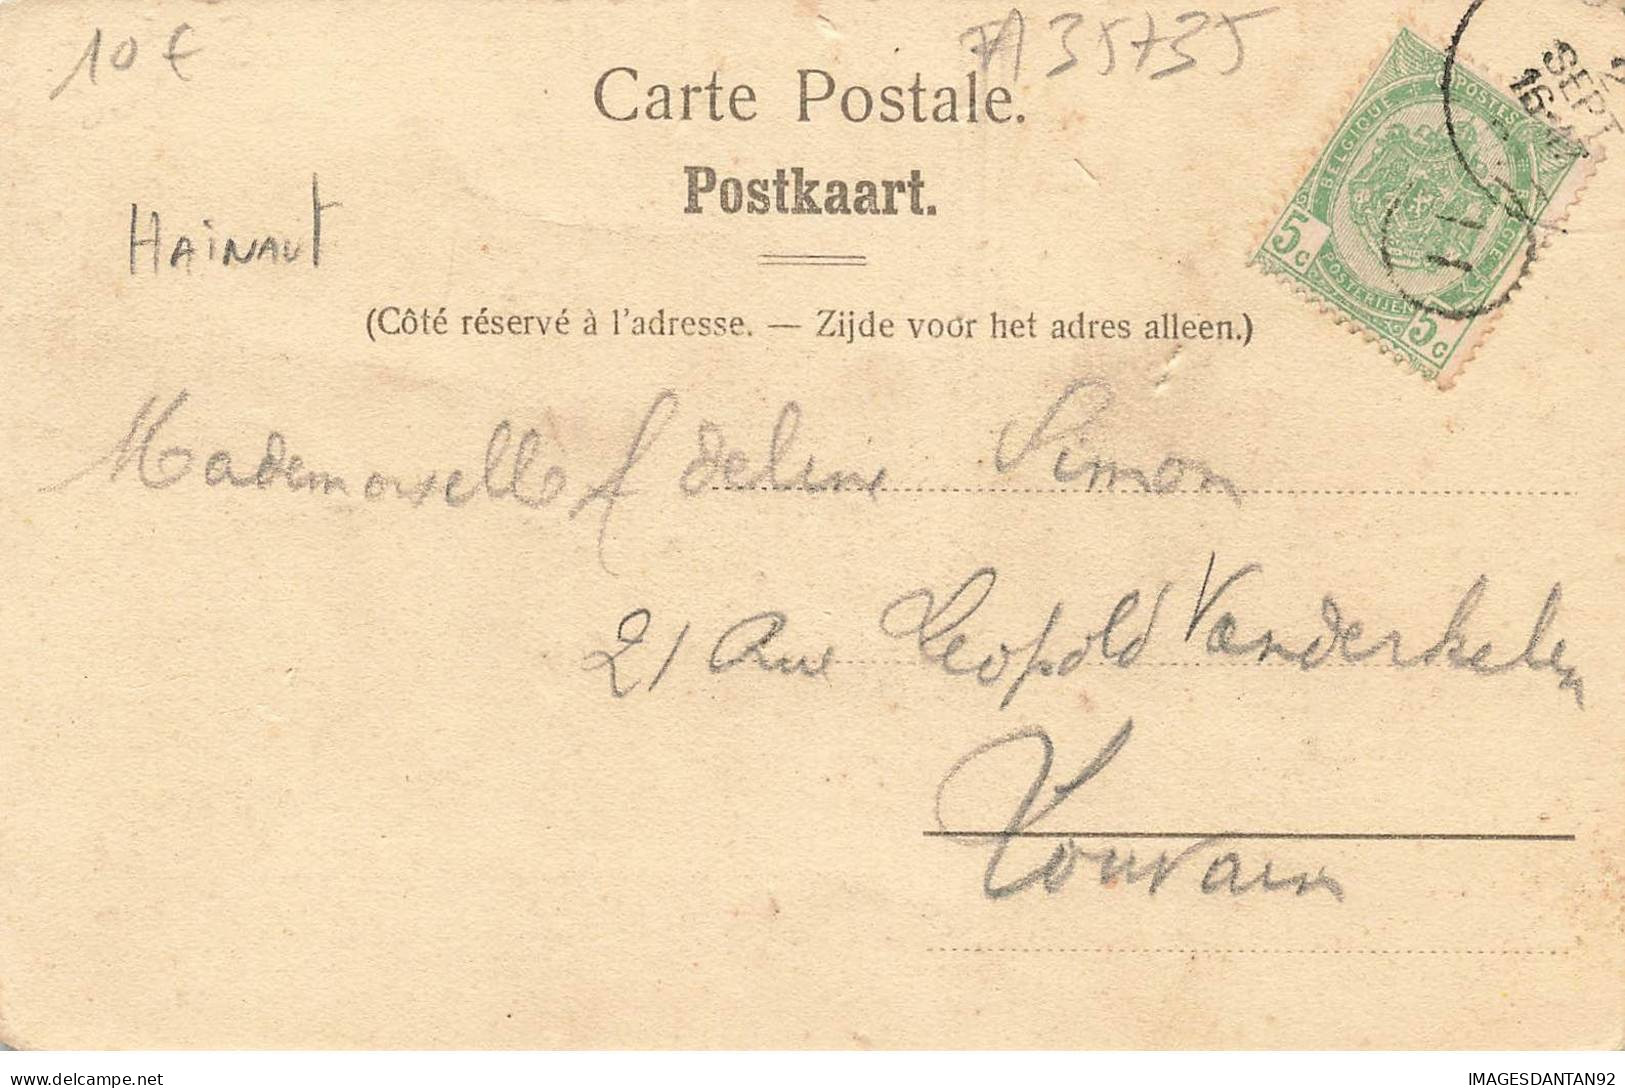 10 €
FA 35735
Carte Postale.
Postkaart.
HAINAUT
(Côté réservé à l'adresse. — Zijde voor het adres alleen.)
BELGIQUE POSTES
BELGIE POSTERIJEN
5 c
5 c
SEPT
16-17
Mademoiselle Adeline Simon
21 Rue Leopold Vanderkelen
Louvain
IMAGESDANTAN92
delcampe.net